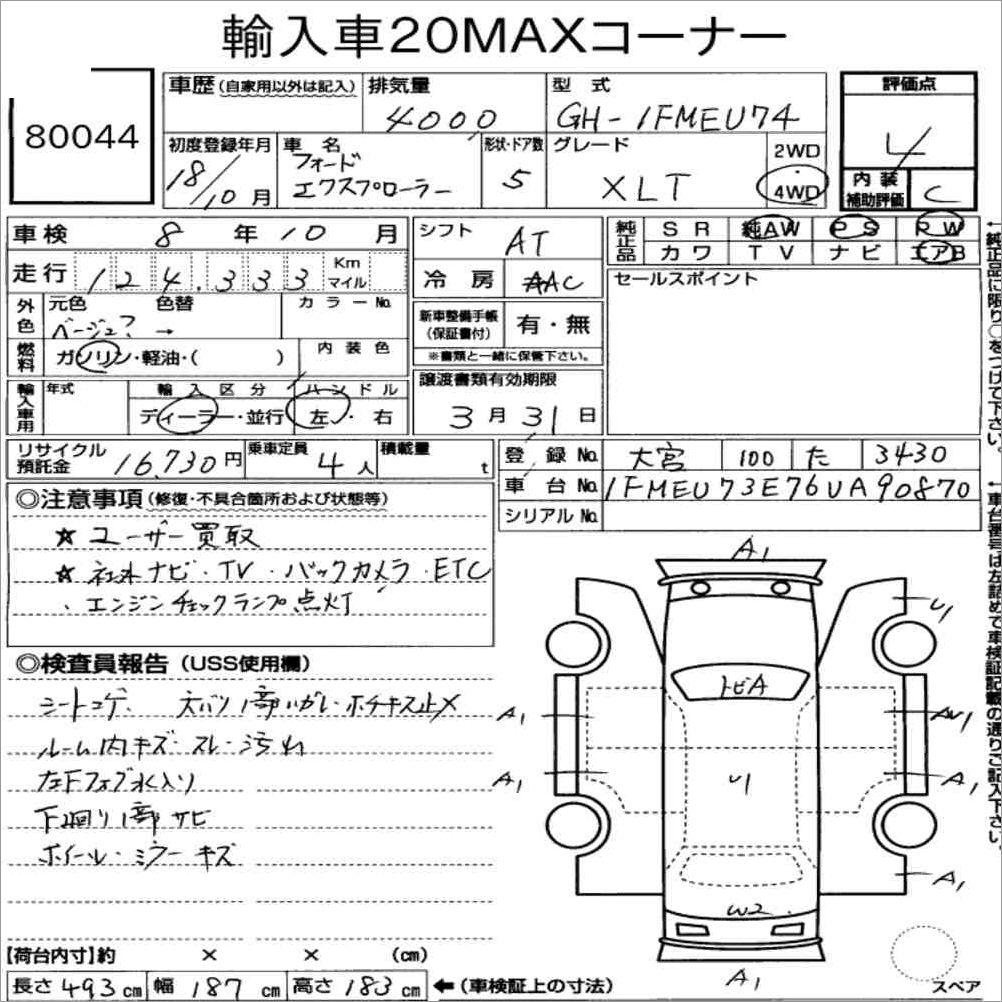 輸入車20MAXコーナー
80044
車歴(自家用以外は記入)
排気量
4000
型式
GH-1FMEU74
評価点
4
初度登録年月
18/10月
車名
フォード
エクスプローラー
形状・ドア数
5
グレード
XLT
2WD
4WD
内装
補助評価
C
車検 8年10月
走行 124,333 Km マイル
外色
元色
色替
カラーNo.
ベージュ? →
燃料
ガソリン・軽油・( )
内装色
輸入車用
年式
輸入区分
ディーラー・並行
ハンドル
左・右
シフト
AT
冷房
AAC
新車整備手帳
(保証書付)
有・無
※書類と一緒に保管下さい。
譲渡書類有効期限
3月31日
純正品
SR 純AW PS PW
カワ TV ナビ エアB
セールスポイント
←純正品に限り○をつけて下さい。
リサイクル
預託金
16,730円
乗車定員
4人
積載量
t
登録No. 大宮 100 た 3430
車台No. 1FMEU73E76UA90870
シリアルNo.
←車台番号は左詰めで車検証記載の通りご記入下さい。
◎注意事項(修復・不具合箇所および状態等)
☆ユーザー買取
☆社外ナビ・TV・バックカメラ・ETC
・エンジンチェックランプ点灯
◎検査員報告(USS使用欄)
シートコゲ、天バリ1部ハガレ・ホチキス止メ
ルーム内キズ・スレ・汚れ
左Fフォグ水入り
下廻り1部サビ
ホイール・ミラーキズ
A1
U1
トビA
A1
AU1
A1
U1
A1
A1
W2
A1
スペア
【荷台内寸】約 × × (cm)
長さ493cm 幅187cm 高さ183cm ←(車検証上の寸法)